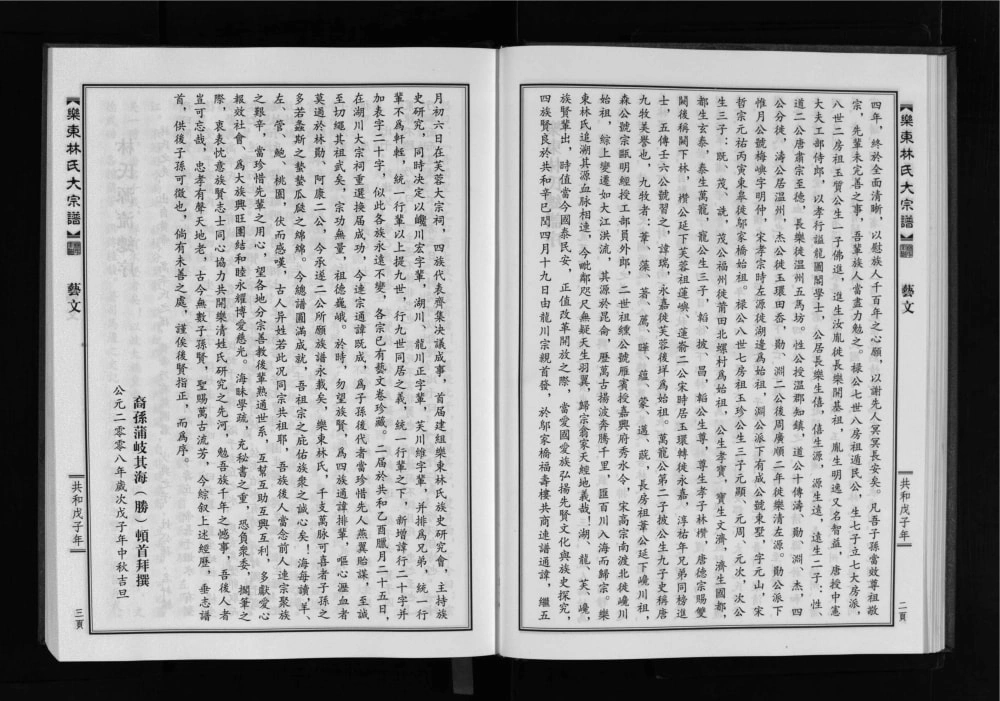 【樂東林氏大宗譜】
藝文
共和戊子年
二頁
四年，終於全面清晰，以慰族人千百年之心願，以謝先人冥冥長安矣。凡吾子孫當效尊祖敬
宗，先輩未完善之事，吾輩族人當盡力勉之。祿公七世八房祖遁民公，生七子立七大房派，
八世二房祖玉質公生一子佛進，進生汝胤徙長樂開基祖，胤生明逸又名智益，唐授中憲
大夫工部侍郎，以孝行謚龍圖閣學士，公居長樂生僖，僖生源，源生遠，遠生二子：性、
道二公唐肅宗至德，長樂徒溫州五馬坊。性公授溫郡知鎮，道公十傳濤、勛、淵、杰，四
公分徙，濤公居溫州，杰公徙玉環田岙，勛、淵二公後周廣順二年徙樂清左源。勛公派下
惟月公號梅嶼字明仲，宋孝宗時左源徒湖邊爲始祖，淵公派下有成公號東墅，字元山，宋
哲宗元祐丙寅東皋徙鄔家橋始祖。祿公八世七房祖玉珍公生三子元顯、元周、元次，次公
生三子：既、茂、詵，茂公福州徙莆田北螺村爲始祖，公生孝寶，寶生文濟，濟生國都，
都生玄泰，泰生萬寵，寵公生三子，韜、披、昌，韜公生尊，尊生孝子林欑，唐德宗賜雙
闕後稱闕下林，欑公延下芙蓉祖蓮嶼、蓮崭二公宋時居玉環轉徙永嘉，淳祐年兄弟同榜進
士，五傳壬六公號習之，諱瑞，永嘉徒芙蓉後垟爲始祖。萬寵公第二子披公生九子史稱唐
九牧美譽也，九牧者；葦、藻、著、薦、曄、蘊、蒙、邁、蔇，長房祖葦公延下巉川祖，
森公號宗甌明經授工部員外郎，二世祖纁公號雁賓授嘉興府秀水令，宋高宗南渡北徙巉川
始祖，綜上變遷如大江洪流，其源於昆侖，歷萬古揚波奔騰千里，匯百川入海而歸宗。樂
東林氏追溯其源血脈相連，今毗鄰咫尺無疑天生羽翼，歸宗翕家天經地義哉！湖、龍、芙、巉，
族賢輩出，時值當今國泰民安，正值改革開放之際，當愛國愛族弘揚先賢文化與族史探究，
四族賢良於共和辛巳閏四月十九日由龍川宗親首發，於鄔家橋福壽樓共商連譜通諱，繼五
月初六日在芙蓉大宗祠，四族代表齊集决議成事，首届建組樂東林氏族史研究會，主持族
史研究，同時决定以巉川宏字輩，湖川、龍川正字輩，芙川維字輩，并排爲兄弟，統一行
輩不爲軒輊，統一行輩以上提九世，行九世同居之義，統一行輩之下，新增諱行二十字并
加表字二十字，似此各族永遠不變，各宗已有藝文卷珍藏。二届於共和乙酉臘月二十五日，
在湖川大宗祠重選換届成功，今連宗通諱既成，爲子孫後代者當珍惜先人燕翼貽謀，至誠
至切繩其祖武矣，宗功無量，祖德巍峨。於時，勿望族賢，爲四族通諱排輩，嘔心瀝血者
莫過於林勛、阿康二公，今承遂二公所願族譜永載矣，樂東林氏，千支萬脉可喜者子孫之
多若螽斯之蟄蟄瓜瓞之綿綿。今總譜圓滿成就，吾祖宗之庇佑族衆之誠心矣！海每讀羊、
左、管、鮑、桃園，伏而感嘆，古人异姓若此况同宗共祖耶，吾族後人當念前人連宗聚族
之艱辛，當珍惜先輩之用心，望各地分宗善教後輩熟通世系，互幫互助互興互利，多獻愛心
報效社會，爲大族興旺團結和睦永耀博愛慈光。海昧學疏，充秘書之重，恐負衆委，擱筆之
際，衷衷忱意族賢志士同心協力共開樂清姓氏研究之先河，勉吾族千年之憾事，吾後人者
豈可忘哉，忠孝有聲天地老，古今無數子孫賢，聖賜萬古流芳，今綜叙上述經歷，垂志譜
首，供後子孫可徵也，倘有未善之處，謹俟後賢指正，而爲序。
裔孫蒲岐其海（勝）頓首拜撰
公元二零零八年歲次戊子年中秋吉旦
【樂東林氏大宗譜】
藝文
共和戊子年
三頁